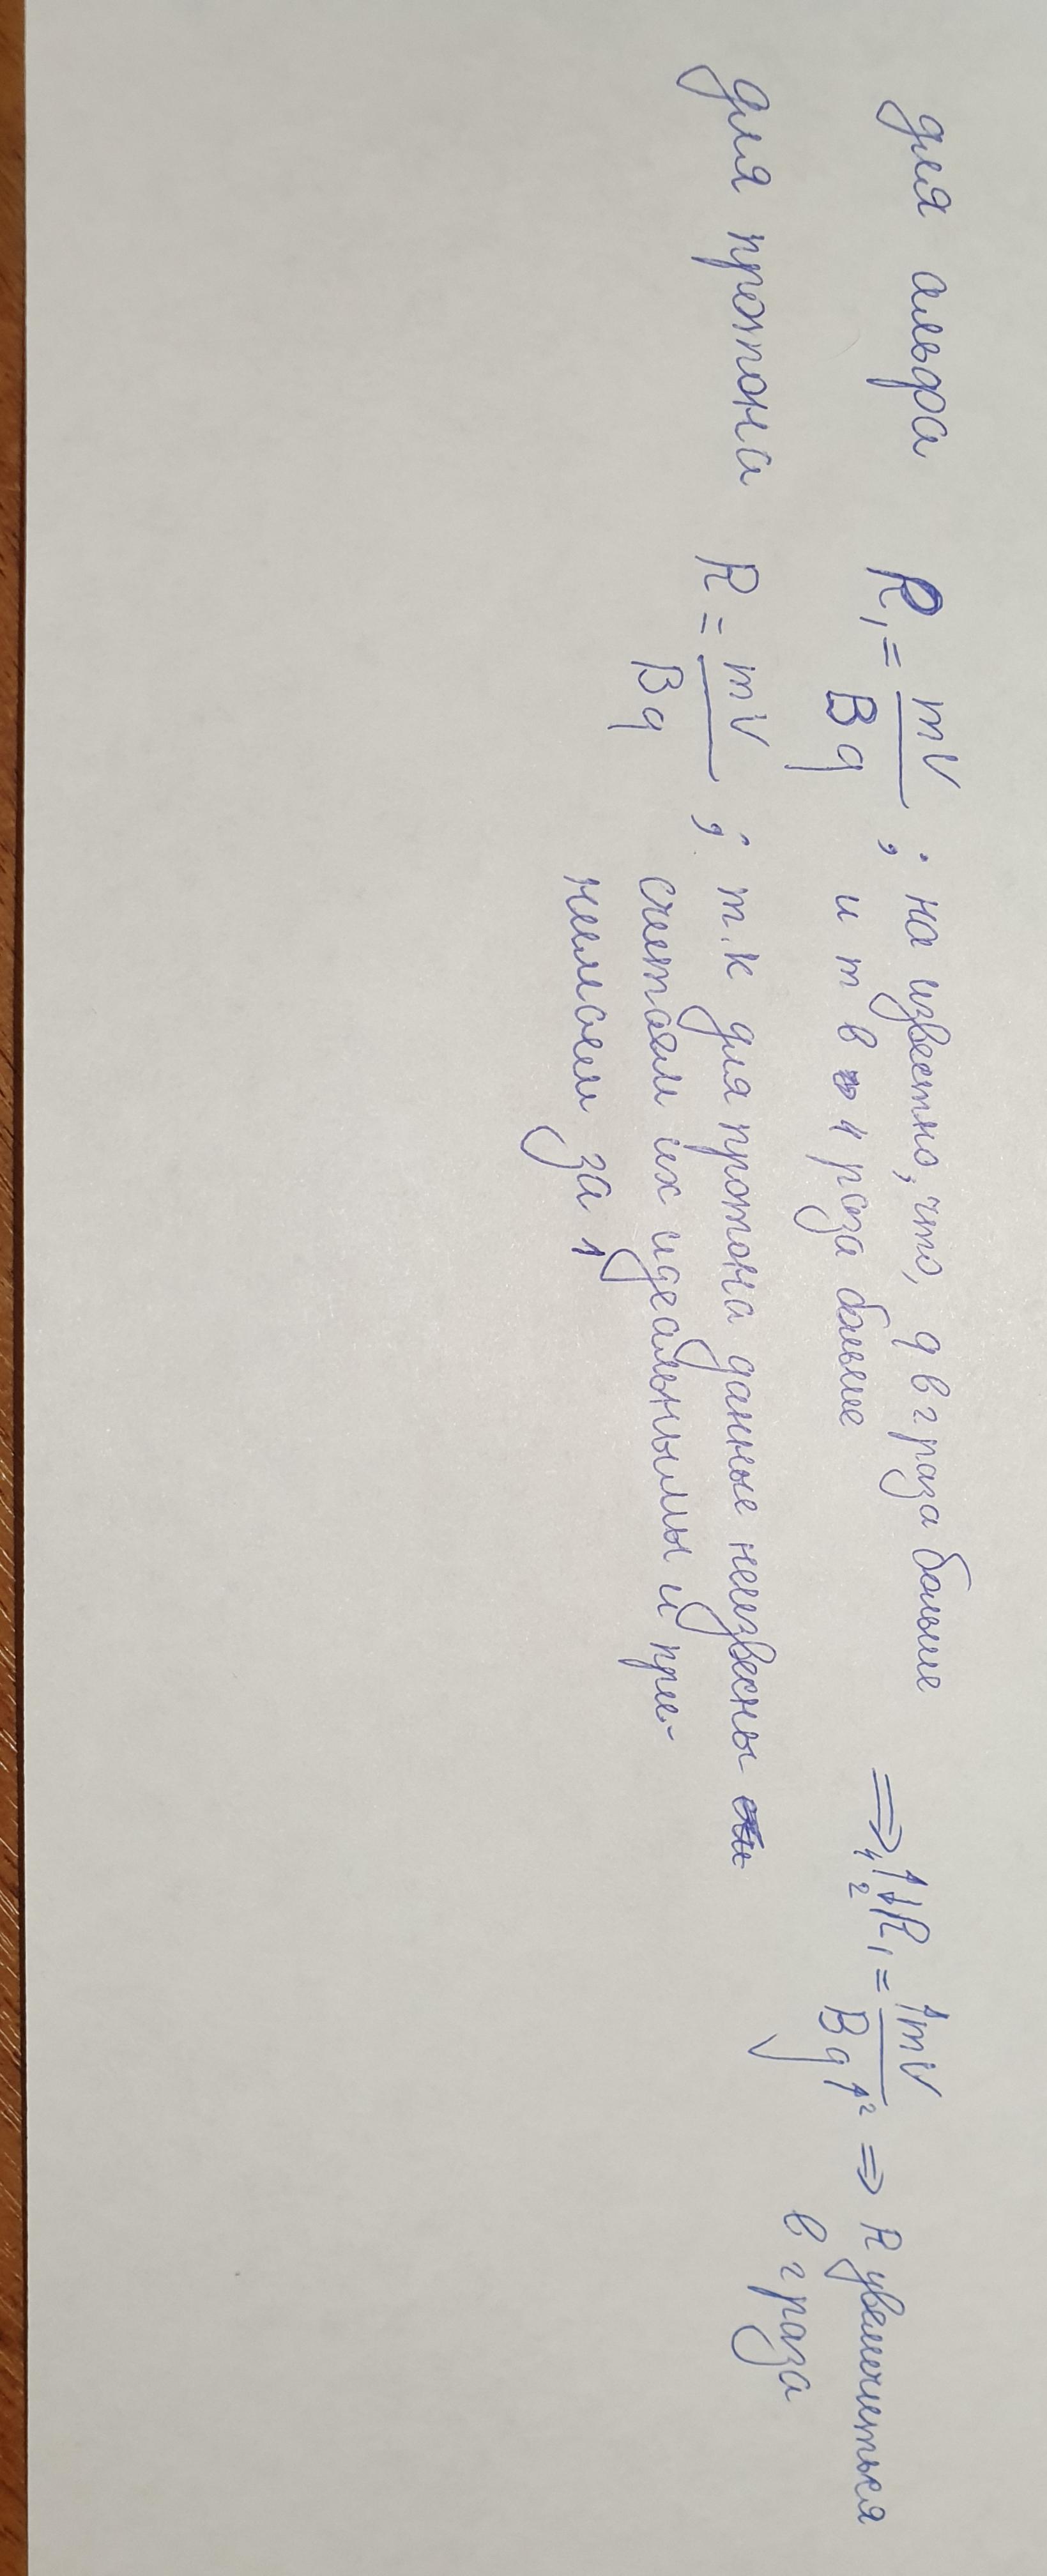 для альфа R₁ = mV / Bq ; на известно, что, q в 2 раза больше
и m в 4 раза больше
⇒ ⁴↑↓₂R₁ = ↑mV / Bq↑² ⇒ R увеличиться
в 2 раза
для протона R = mV / Bq ; т.к для протона данные неизвесны
считаем их идеальнымы и при-
нимаем за 1